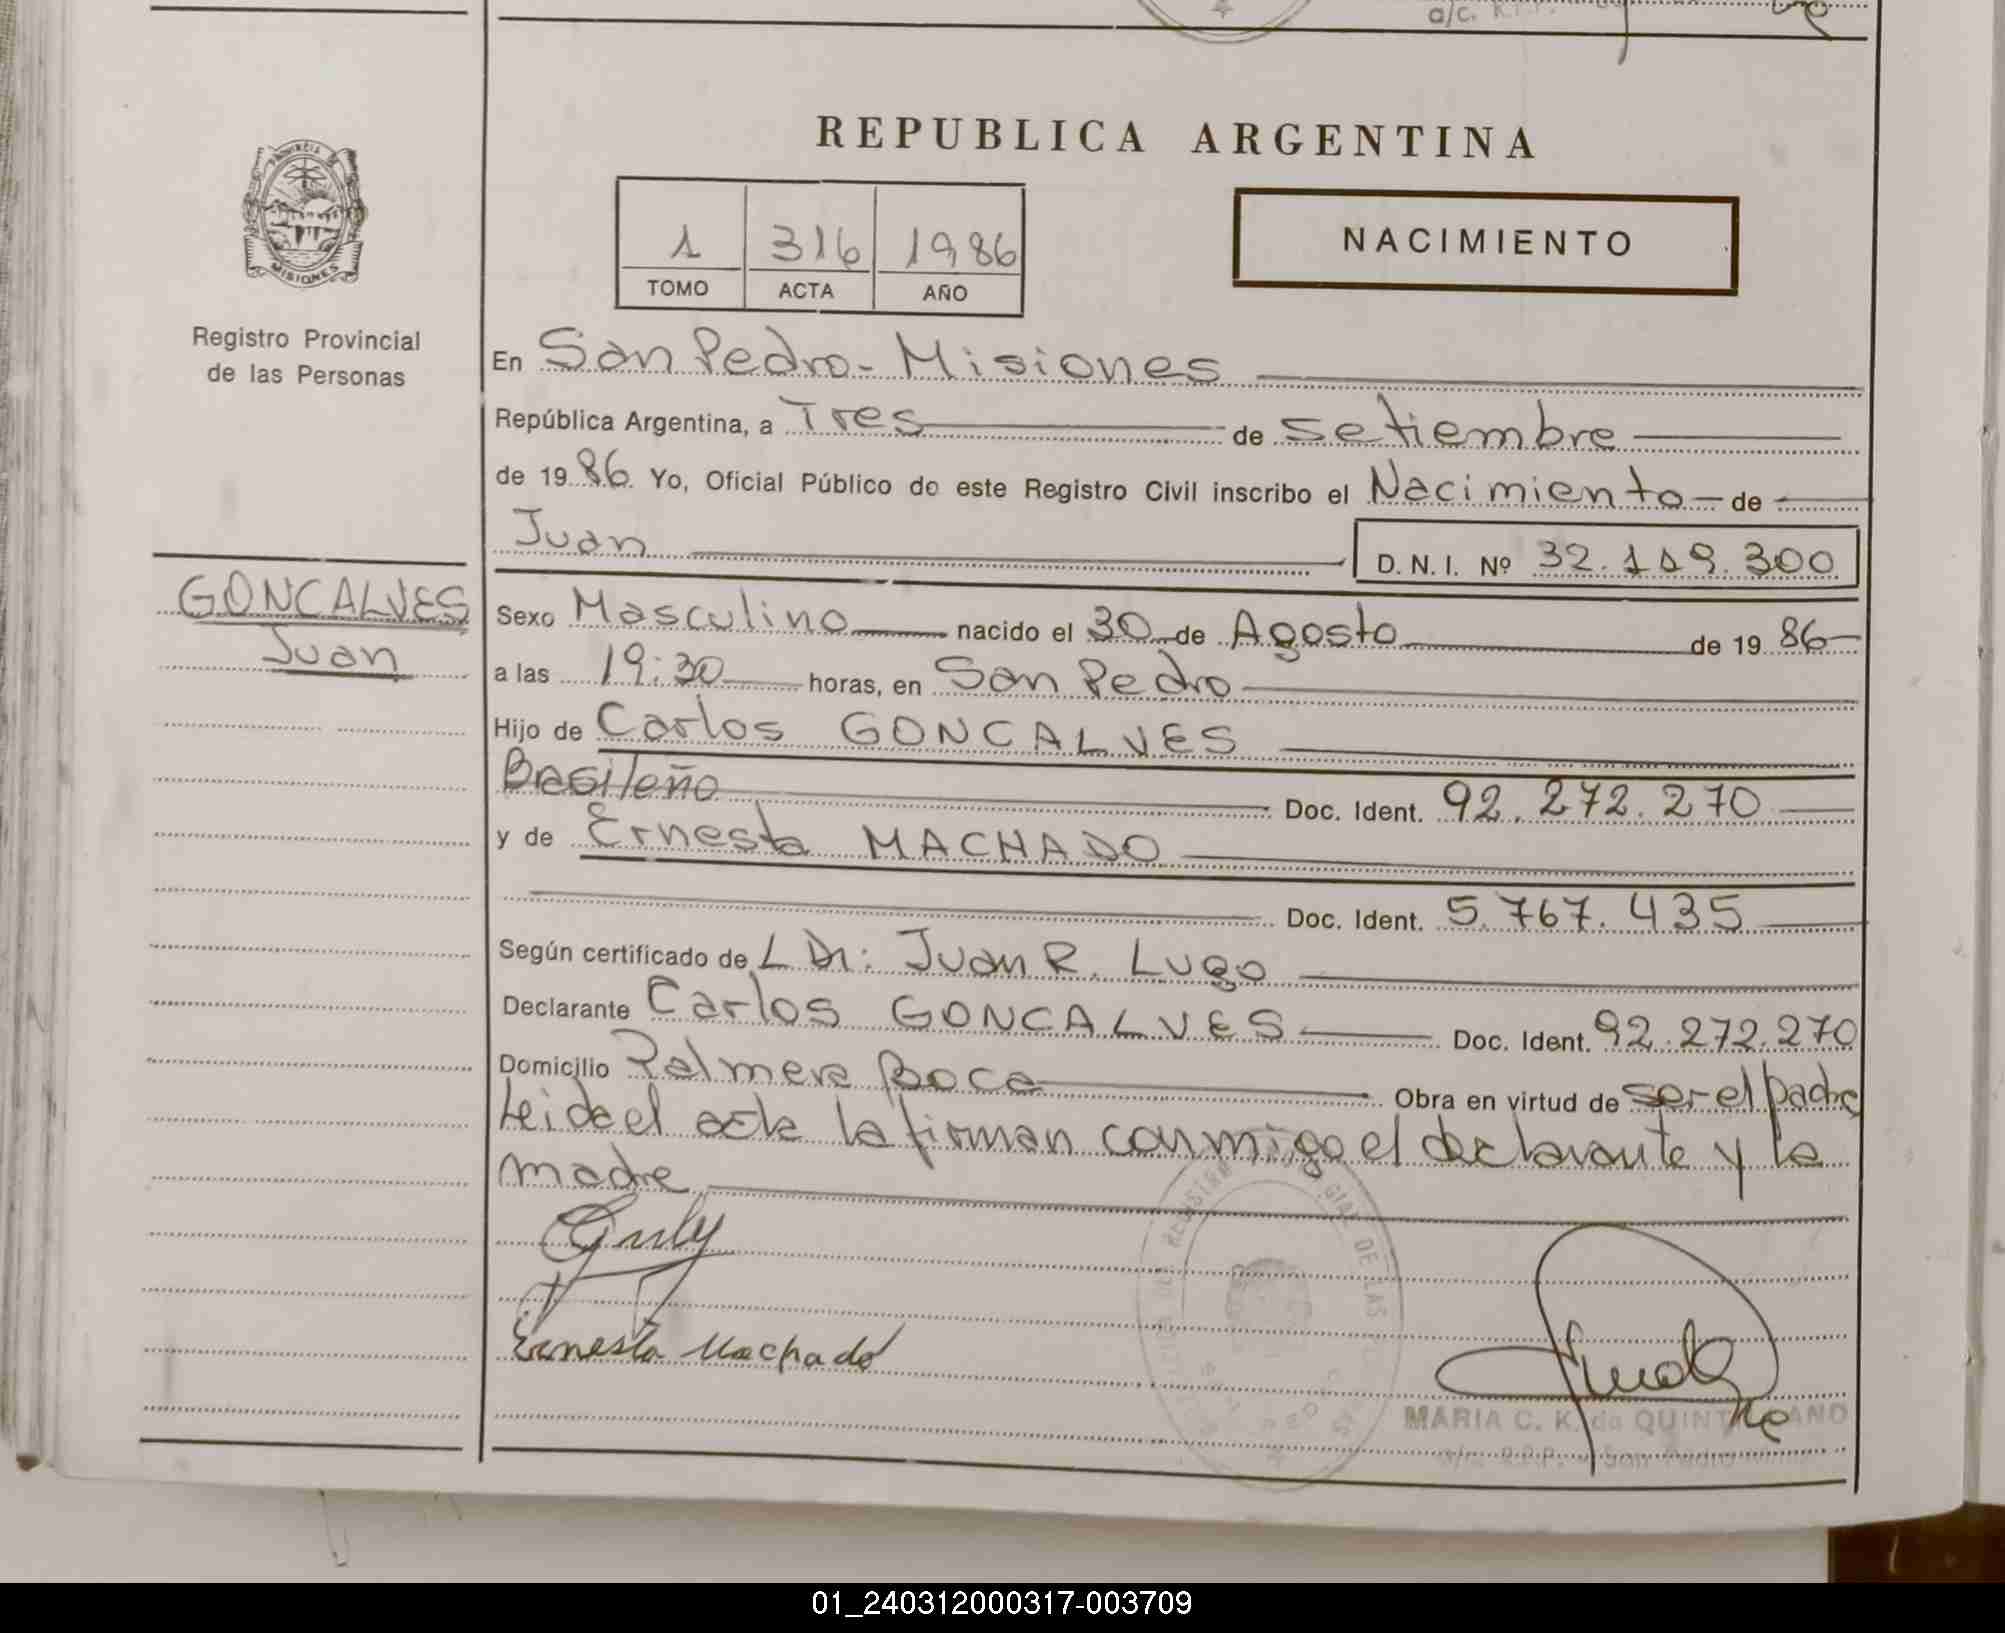 a/c. R.P.P.
REPUBLICA ARGENTINA
PROVINCIA DE
MISIONES
1 316 1986
TOMO ACTA AÑO
NACIMIENTO
Registro Provincial
de las Personas
En San Pedro - Misiones
República Argentina, a Tres de setiembre
de 1986. Yo, Oficial Público de este Registro Civil inscribo el Nacimiento de
Juan D.N.I. Nº 32.119.300
GONCALVES
Juan
Sexo Masculino nacido el 30 de Agosto de 1986
a las 19:30 horas, en San Pedro
Hijo de Carlos GONCALVES
Brasileño Doc. Ident. 92.272.270
y de Ernesta MACHADO
Doc. Ident. 5.767.435
Según certificado de L Dr: Juan R. Lugo
Declarante Carlos GONCALVES Doc. Ident. 92.272.270
Domicilio Palmera Boca Obra en virtud de ser el padre
Leida el acta la firman conmigo el declarante y la
madre
Ernesta Machado
MARIA C. K. de QUINTANO
a/c R.P.P. - San Pedro
01_240312000317-003709